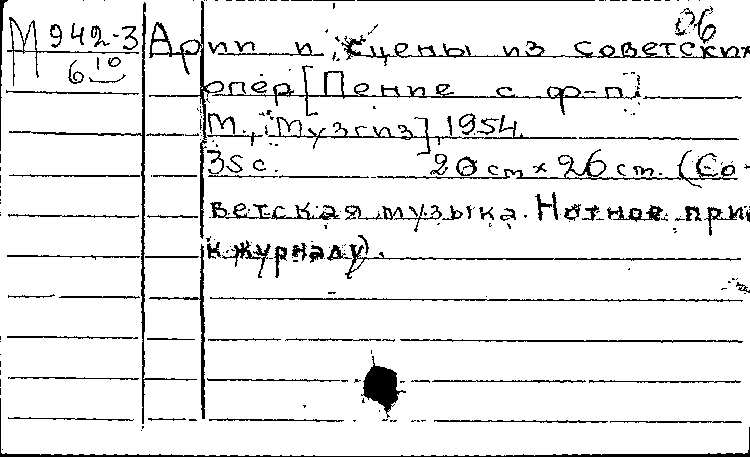 06
М 942-3 Арии и сцены из советских
6 10 опер [Пение с ф-п]
М., [Музгиз], 1954.
35 с. 20 cm × 26 cm. (Со-
ветская музыка. Нотное при
к журналу).